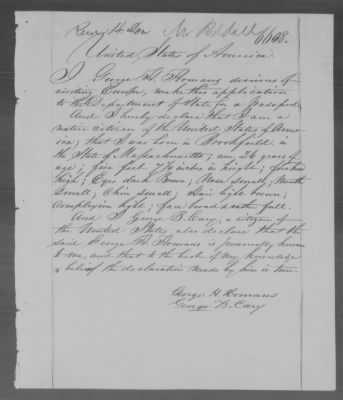 Recd 14 Dec
United States of America
I George H. Homans desirous of
visiting Europe, make this application
to the Department of State for a Passport,
And I hereby declare that I am a
native citizen of the United States of Amer
ica; that I was born in Brookfield in
the State of Massachusetts; am 26 years of
age; five feet 7 1/2 inches in hight; forehead
high; Eyes dark Brown; Nose small; Mouth
small; Chin small; Hair light brown;
Complexion light; face broad & rather full.
And I George B. Cary, a citizen of
the United States also declare that the
said George H. Homans is personally known
to me, and that to the best of my knowledge
& belief the declaration made by him is true.
George H. Homans
George B. Cary